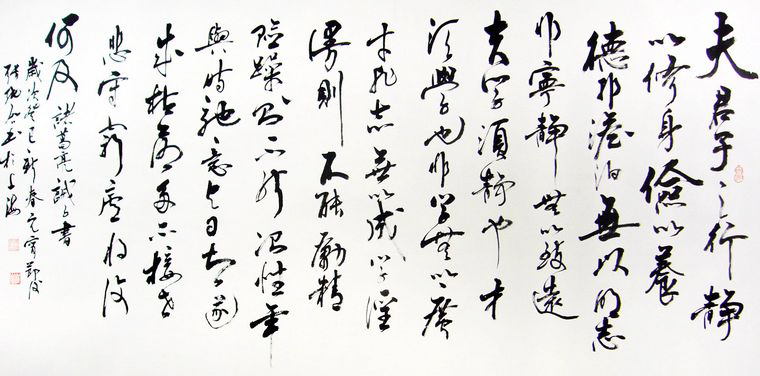 夫君子之行静
以修身儉以養
德非澹泊無以明志
非寧静無以致遠
夫学須静也才
須學也非学無以廣
才非志無以成学淫
漫則不能勵精
险躁則不能冶性年
與時馳意与日去遂
成枯落多不接世
悲守窮廬将復
何及 諸葛亮誡子書
歲次癸巳新春元宵節後
於上海